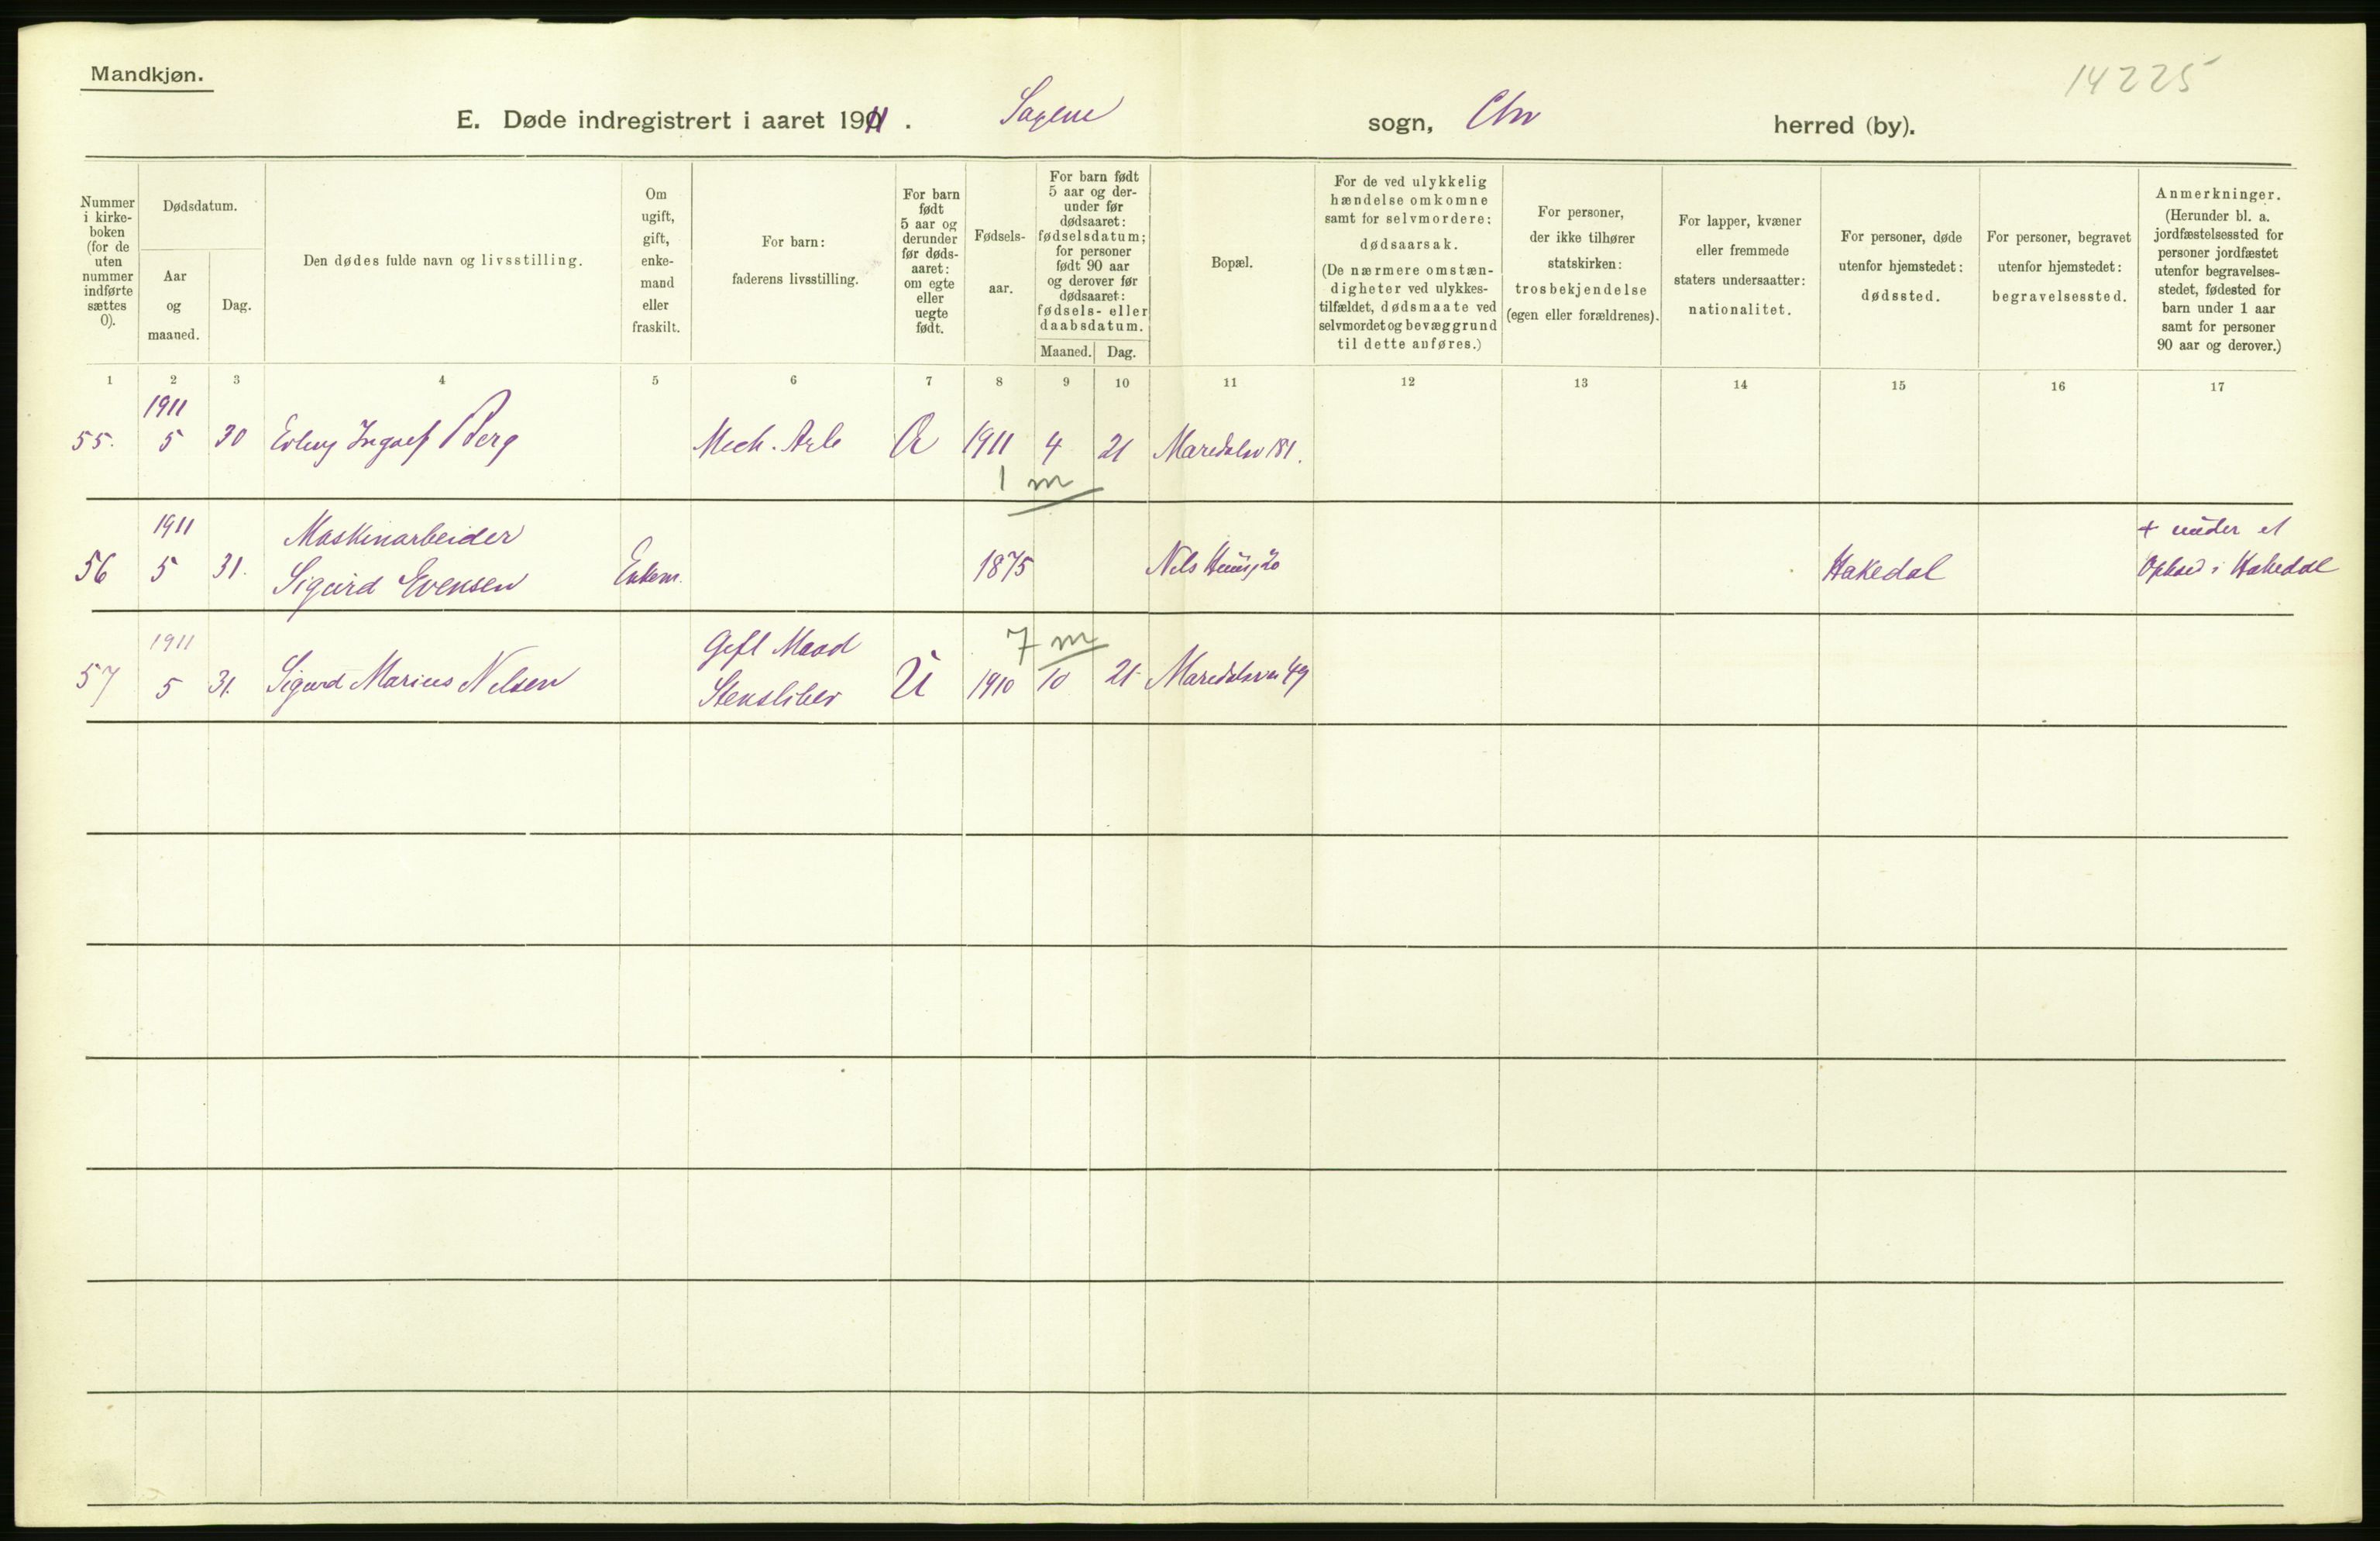 Mandkjøn.
14225
E. Døde indregistrert i aaret 1911. Sagene sogn, Chr herred (by).
Nummer i kirkeboken (for de uten nummer indførte sættes 0).
Dødsdatum.
Aar og maaned.
Dag.
Den dødes fulde navn og livsstilling.
Om ugift, gift, enkemand eller fraskilt.
For barn: faderens livsstilling.
For barn født 5 aar og derunder før dødsaaret: om egte eller uegte født.
Fødselsaar.
For barn født 5 aar og derunder før dødsaaret: fødselsdatum; for personer født 90 aar og derover før dødsaaret: fødsels- eller daabsdatum.
Maaned. Dag.
Bopæl.
For de ved ulykkelig hændelse omkomne samt for selvmordere: dødsaarsak. (De nærmere omstændigheter ved ulykkestilfældet, dødsmaate ved selvmordet og bevæggrund til dette anføres.)
For personer, der ikke tilhører statskirken: trosbekjendelse (egen eller forældrenes).
For lapper, kvæner eller fremmede staters undersaatter: nationalitet.
For personer, døde utenfor hjemstedet: dødssted.
For personer, begravet utenfor hjemstedet: begravelsessted.
Anmerkninger. (Herunder bl. a. jordfæstelsessted for personer jordfæstet utenfor begravelsesstedet, fødested for barn under 1 aar samt for personer 90 aar og derover.)
1 2 3 4 5 6 7 8 9 10 11 12 13 14 15 16 17
1911
55. 5 30 Ingolf Berg Mech. Arb 1911 4 21 Maredalsv 181.
1 m
1911 Maskinarbeider + under et
56 5 31. Sigurd Evensen Enkem. 1875 Nels 20 Hakedal Ophold i Hakedal
1911 Gift Mand 7 m
57 5 31. Sigurd Marius Nilsen U 1910 10 21 Maredalsvei 49